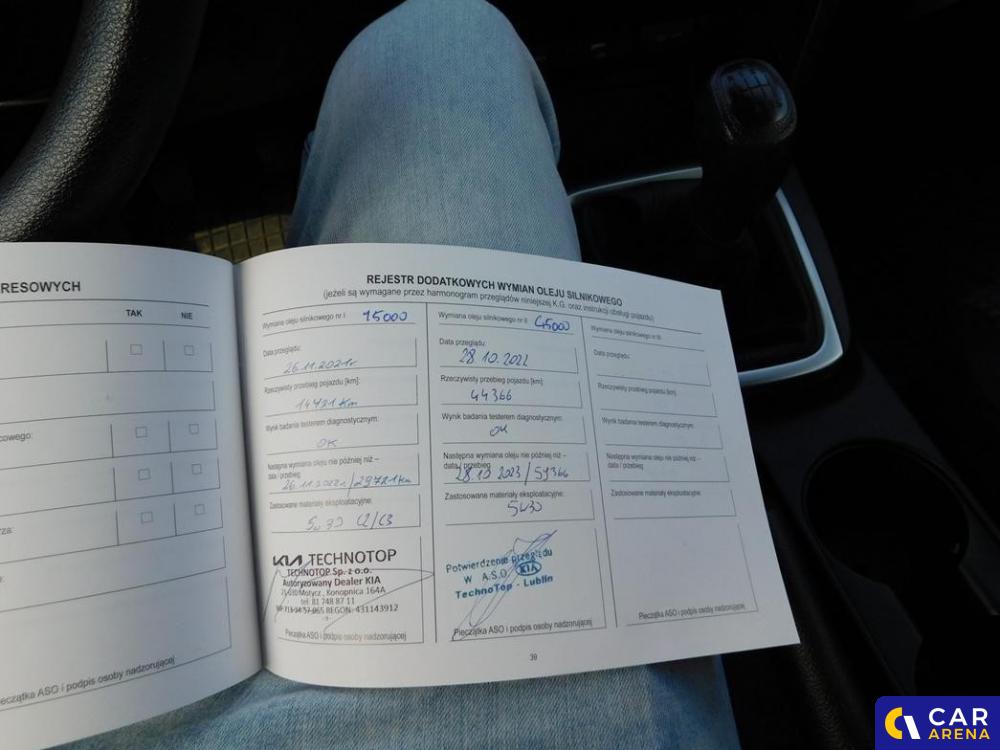 RESOWYCH
TAK NIE
cowego:
rza:
Pieczątka ASO i podpis osoby nadzorującej
REJESTR DODATKOWYCH WYMIAN OLEJU SILNIKOWEGO
(jeżeli są wymagane przez harmonogram przeglądów niniejszej K.G. oraz instrukcji obsługi pojazdu)
Wymiana oleju silnikowego nr I: 15000
Data przeglądu:
26.11.2021r
Rzeczywisty przebieg pojazdu [km]:
14721 Km
Wynik badania testerem diagnostycznym:
OK
Następna wymiana oleju nie później niż –
data / przebieg
26.11.2022r/29721Km
Zastosowane materiały eksploatacyjne:
5w30 C2/C3
KIA TECHNOTOP
TECHNOTOP Sp. z o.o.
Autoryzowany Dealer KIA
21-030 Motycz, Konopnica 164A
tel. 81 748 87 11
REGON: 431143912
Pieczątka ASO i podpis osoby nadzorującej
Wymiana oleju silnikowego nr II: 45000
Data przeglądu:
28.10.2022
Rzeczywisty przebieg pojazdu [km]:
44366
Wynik badania testerem diagnostycznym:
OK
Następna wymiana oleju nie później niż –
data / przebieg
28.10.2023/59366
Zastosowane materiały eksploatacyjne:
5W30
Potwierdzenie przeglądu
W A.S.O. KIA
TechnoTop - Lublin
Pieczątka ASO i podpis osoby nadzorującej
Wymiana oleju silnikowego nr III:
Data przeglądu:
Rzeczywisty przebieg pojazdu [km]:
Wynik badania testerem diagnostycznym:
Następna wymiana oleju nie później niż –
data / przebieg
Zastosowane materiały eksploatacyjne:
Pieczątka ASO i podpis osoby nadzorującej
39
CAR
ARENA